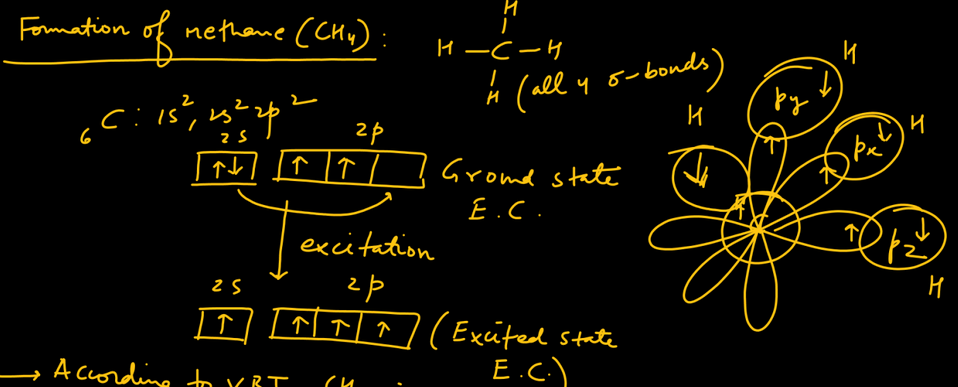 Formation of methane (CH4) :
H
H — C — H
H (all 4 σ-bonds)
6C : 1s², 2s² 2p²
2s 2p
↑↓ ↑ ↑ Ground state
E.C.
excitation
2s 2p
↑ ↑ ↑ ↑ (Excited state
E.C.)
→ According to VBT, CH4
H
py ↓
H
H
px ↓
↓
↑ ↑ ↑
C
↑ pz ↓
H